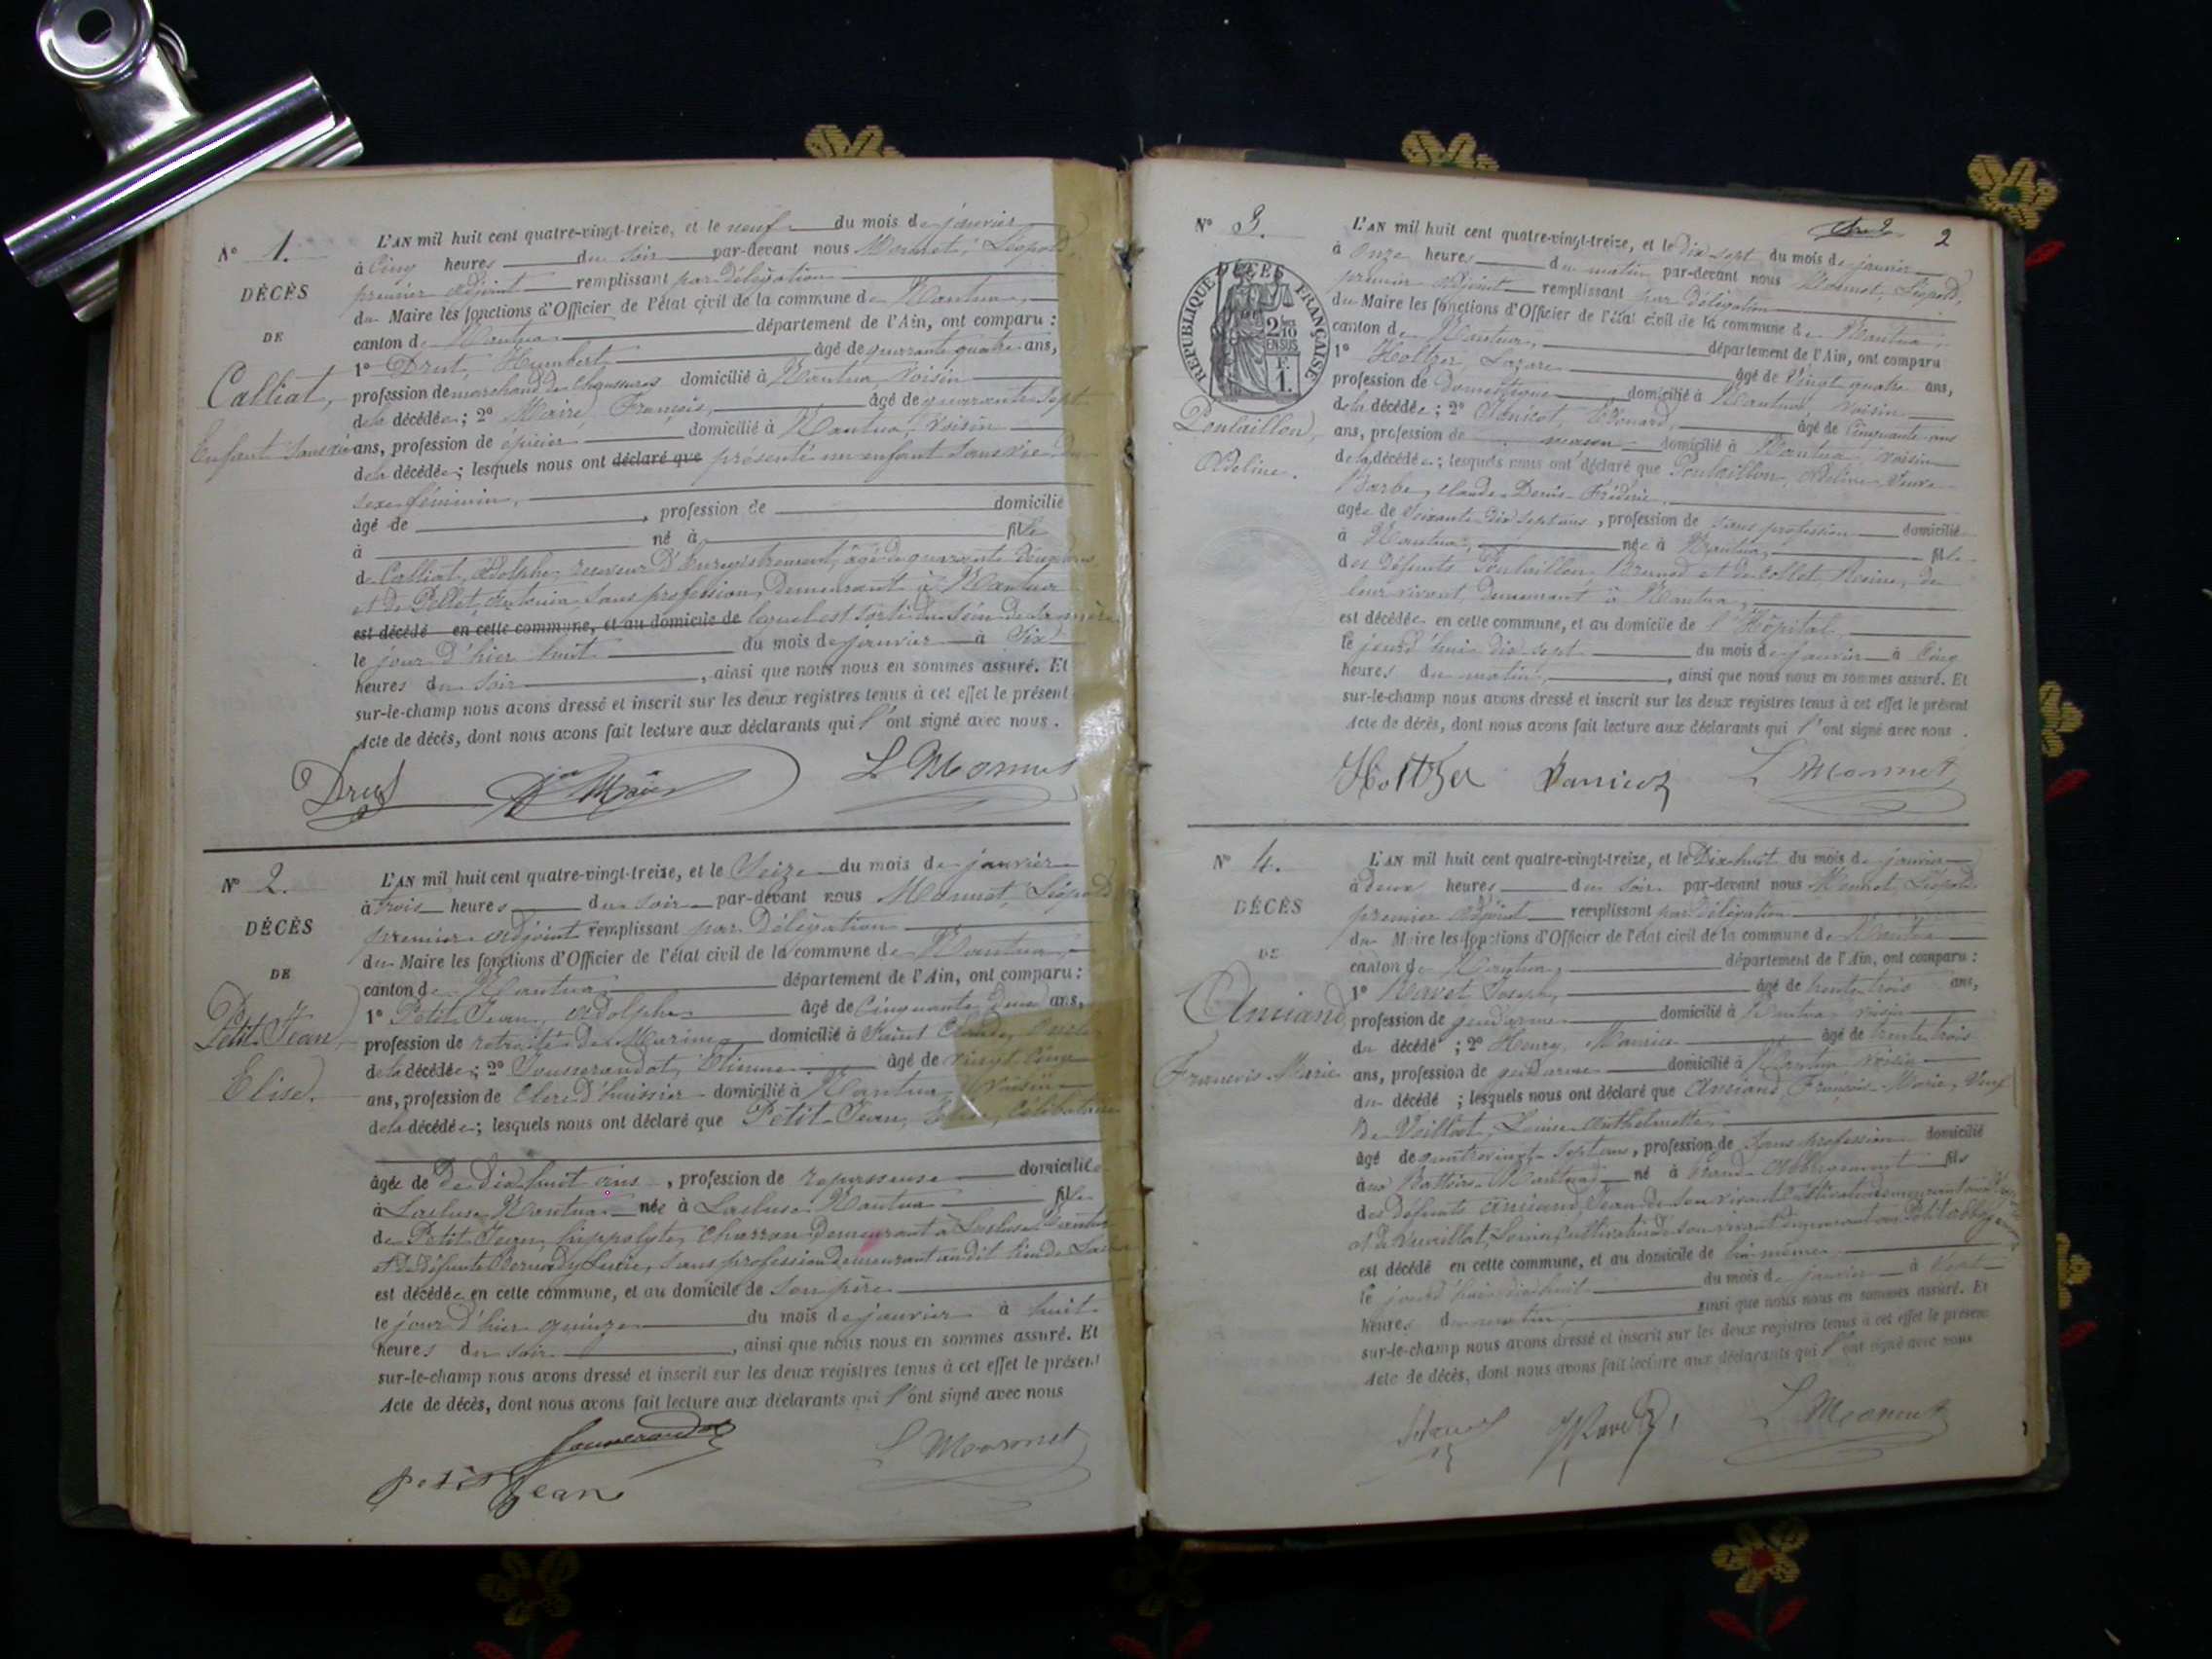 N° 1.
DÉCÈS
DE
Calliat,
Enfant sans vie
L'AN mil huit cent quatre-vingt-treize, et le neuf du mois de janvier
à Cinq heures du soir par-devant nous Monnet, Léopold,
premier adjoint remplissant par délégation
du Maire les fonctions d'Officier de l'état civil de la commune de Nantua,
canton de Nantua département de l'Ain, ont comparu :
1° Drut, Humbert âgé de quarante quatre ans,
profession de marchand de chaussures domicilié à Nantua, voisin
de la décédée ; 2° Maire, François, âgé de quarante sept
ans, profession de épicier domicilié à Nantua, voisin
de la décédée ; lesquels nous ont déclaré que présenté un enfant sans vie du
sexe féminin,
âgé de , profession de domicilié
à né à fille
de Calliat, Adolphe, receveur d'Enregistrement, âgé de quarante deux ans
et de Pellet, sans profession, demeurant à Nantua
est décédé en cette commune, et au domicile de lequel est sorti du sein de sa mère
le jour d'hier huit du mois de janvier à Six
heures du soir , ainsi que nous nous en sommes assuré. Et
sur-le-champ nous avons dressé et inscrit sur les deux registres tenus à cet effet le présent
Acte de décès, dont nous avons fait lecture aux déclarants qui l'ont signé avec nous.
Drut L Monnet
N° 2.
DÉCÈS
DE
Petit-Jean,
Elise.
L'AN mil huit cent quatre-vingt-treize, et le Seize du mois de janvier
à trois heures du soir par-devant nous Monnet, Léopold
premier adjoint remplissant par délégation
du Maire les fonctions d'Officier de l'état civil de la commune de Nantua,
canton de Nantua département de l'Ain, ont comparu :
1° Petit-Jean, Adolphe âgé de Cinquante deux ans,
profession de retraité de Marine domicilié à Saint Claude,
de la décédée ; 2° Jousserandot, Etienne âgé de vingt cinq
ans, profession de Clerc d'huissier domicilié à Nantua voisin
de la décédée ; lesquels nous ont déclaré que Petit-Jean, Elise, Célibataire
âgée de De dix huit ans , profession de repasseuse domiciliée
à Lacluse Nantua née à Lacluse Nantua fille
de Petit-Jean, hippolyte, Charron demeurant à Lacluse Nantua
et de défunte Lucie, sans profession demeurant audit lieu de
est décédée en cette commune, et au domicile de son père
le jour d'hier quinze du mois de janvier à huit
heures du soir , ainsi que nous nous en sommes assuré. Et
sur-le-champ nous avons dressé et inscrit sur les deux registres tenus à cet effet le présent
Acte de décès, dont nous avons fait lecture aux déclarants qui l'ont signé avec nous
Jousserandot
petit Jean L Monnet
2
N° 3.
DÉCÈS
RÉPUBLIQUE FRANÇAISE
2/10
EN SUS
Poulaillon,
Adeline.
L'AN mil huit cent quatre-vingt-treize, et le dix sept du mois de janvier
à onze heures du matin par-devant nous Monnet, Léopold,
premier adjoint remplissant par délégation
du Maire les fonctions d'Officier de l'état civil de la commune de Nantua,
canton de Nantua, département de l'Ain, ont comparu
1° Holtzer, Lazare âgé de Vingt quatre ans,
profession de Domestique domicilié à Nantua, voisin
de la décédée ; 2° âgé de Cinquante ans
ans, profession de maçon domicilié à Nantua voisin
de la décédée ; lesquels nous ont déclaré que Poulaillon, Adeline Veuve
Barbe, Claude-Denis-Fréderic
agée de Soixante dix sept ans , profession de sans profession domiciliée
à Nantua, née à Nantua, fille
des défunts Poulaillon, et de Collet, Reine, de
leur vivant demeurant à Nantua,
est décédée en cette commune, et au domicile de l'Hôpital
le jourd'hui dix sept du mois de janvier à Cinq
heures du matin , ainsi que nous nous en sommes assuré. Et
sur-le-champ nous avons dressé et inscrit sur les deux registres tenus à cet effet le présent
Acte de décès, dont nous avons fait lecture aux déclarants qui l'ont signé avec nous.
Holtzer L Monnet
N° 4.
DÉCÈS
DE
Amiand
François-Marie
L'AN mil huit cent quatre-vingt-treize, et le Dix-huit du mois de janvier
à deux heures du soir par-devant nous Monnet Léopold
premier adjoint remplissant par délégation
du Maire les fonctions d'Officier de l'état civil de la commune de Nantua
canton de Nantua, département de l'Ain, ont comparu :
1° Joseph, âgé de trente trois ans,
profession de gendarme domicilié à Nantua voisin
du décédé ; 2° Henry, Maurice âgé de trente trois
ans, profession de gendarme domicilié à Nantua voisin
du décédé ; lesquels nous ont déclaré que Amiand, François-Marie, Veuf
de Louise Anthelmette,
âgé de quatre vingt sept ans, profession de sans profession domicilié
aux Battoirs Nantua né à Grand Abbergement fils
des défunts Amiand, de son vivant Cultivateur demeurant
et de de son vivant demeurant au Petit Abbergement
est décédé en cette commune, et au domicile de lui-même
le jourd'hui dix huit du mois de janvier à
heures du matin ainsi que nous nous en sommes assuré. Et
sur-le-champ nous avons dressé et inscrit sur les deux registres tenus à cet effet le présent
Acte de décès, dont nous avons fait lecture aux déclarants qui l'ont signé avec nous
L Monnet